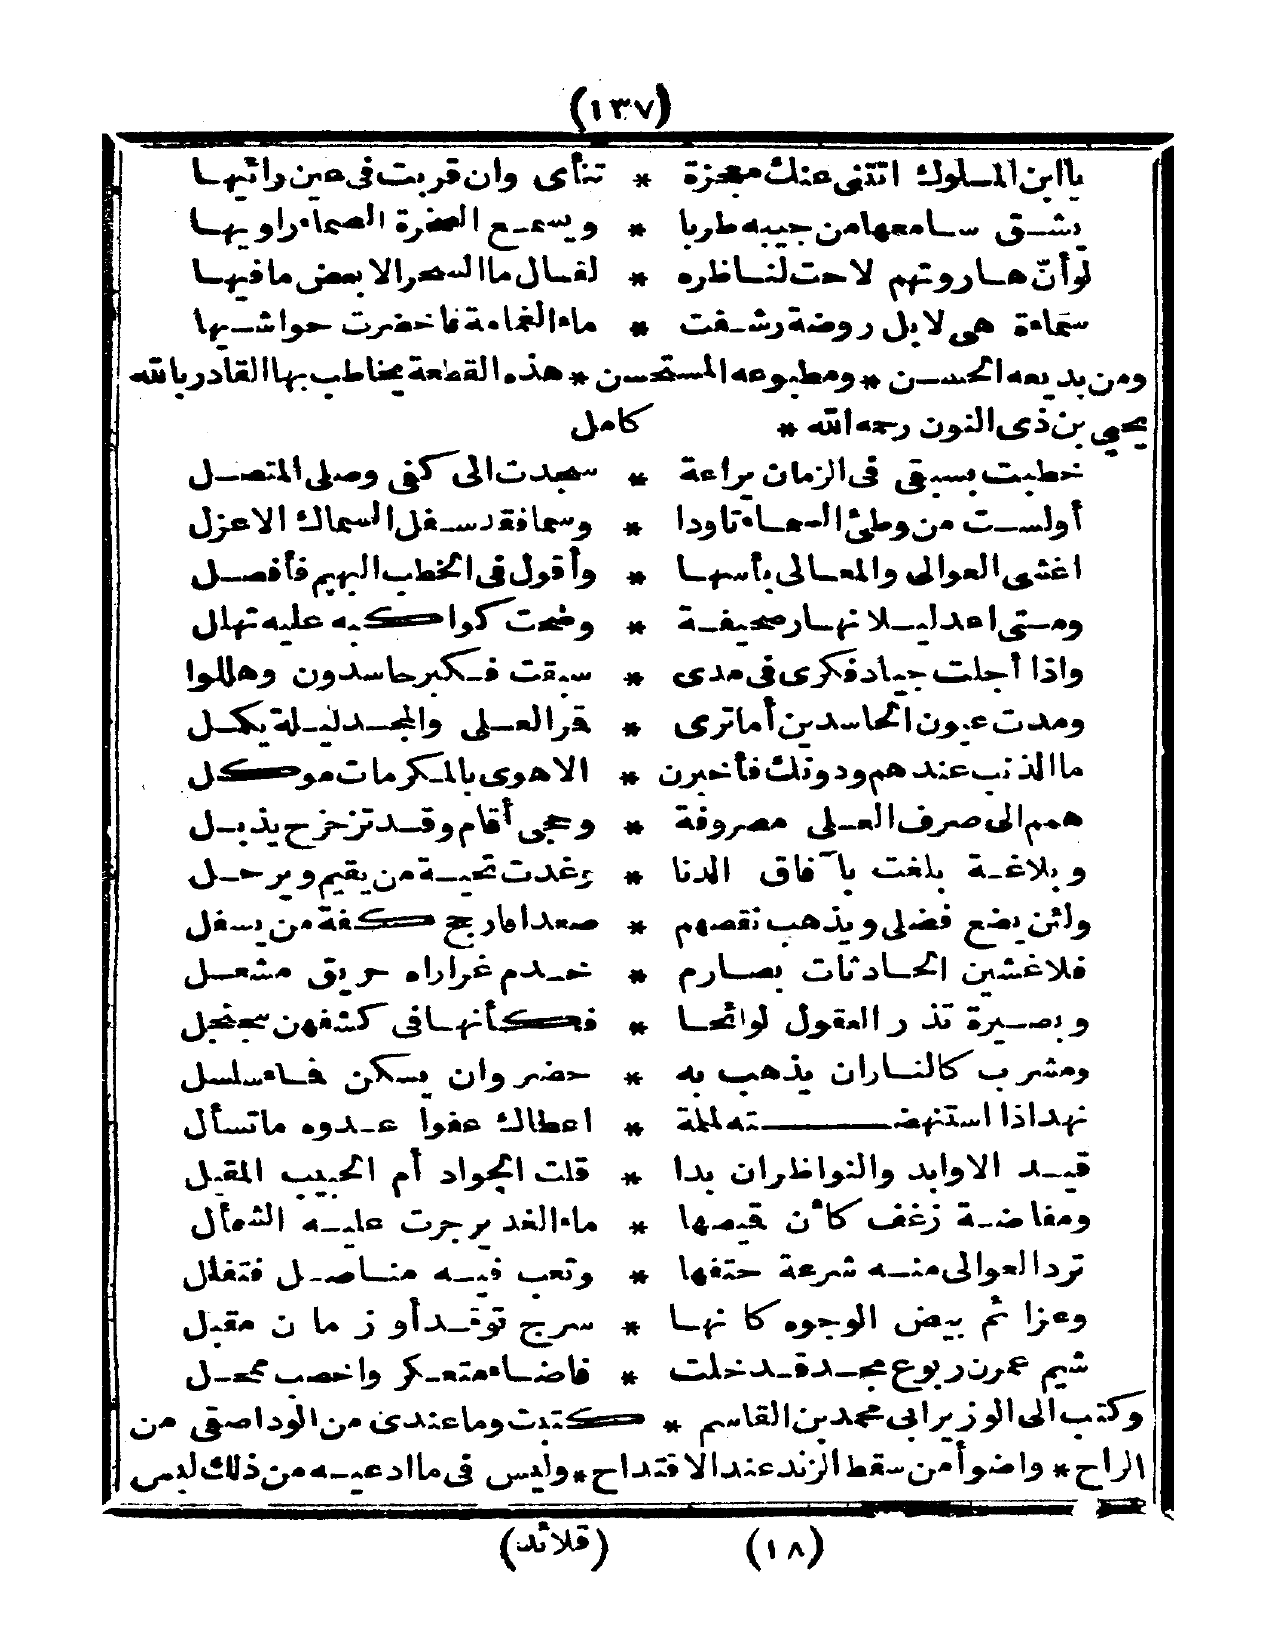 (١٣٧)
يا ابن الملوك اتتنى عنك معجزة * تنأى وان قربت فى عين رائيها
يشق سامعها من جيبه طربا * ويسمع الصخرة الصماء راويها
لو أنّ هاروتهم لاحت لناظره * لقال ما السحر الا بعض ما فيها
سماءة هى لا بل روضة رشفت * ماء الغمامة فاخضرت حواشيها
ومن بديعه الحسن * ومطبوعه المستحسن * هذه القطعة يخاطب بها القادر بالله
يحيى بن ذى النون رحمه الله * كامل
خطبت بسبقى فى الزمان براعة * سجدت الى كفى وصلى المتصل
أولست من وطئ السماء تاودا * وسما فقد سفل السماك الاعزل
اغشى العوالى والمعالى بأسها * وأقول فى الخطب البهيم فأفصل
ومتى اعد ليلا نهار صحيفة * وضحت كواكبه عليه تهلل
واذا أجلت جياد فكرى فى مدى * سبقت فكبر حاسدون وهللوا
ومدت عيون الحاسدين أما ترى * قمر العلى والمجد ليلة يكمل
ما الذنب عندهم ودونك فأخبرن * الا هوى بالمكرمات موكل
همم الى صرف العلى مصروفة * وحجى أقام وقد تزحزح يذبل
وبلاغة بلغت بآفاق الدنا * وغدت تحية من يقيم ويرحل
ولئن يضع فضلى ويذهب نقصهم * صعدا فارجح كفة من يسفل
فلاغشين الحادثات بصارم * خدم غراراه حريق مشعل
وبصيرة تذر العقول لوائحا * فكأنها فى كشفهن سجنجل
ومشرب كالنار ان يذهب به * حضر وان يسكن فماء سلسل
نهد اذا استنهضته لملمة * اعطاك عفوا عدوه ما تسأل
قيد الاوابد والنواظر ان بدا * قلت الجواد أم الحبيب المقبل
ومفاضة زغف كأن قميصها * ماء الغدير جرت عليه الشمأل
ترد العوالى منه شرعة حتفها * وتعب فيه مناصل فتفلل
وعزائم بيض الوجوه كانها * سرج توقد أو زمان مقبل
شيم عمرن ربوع مجد قد خلت * فاضاء متعكر واخصب ممحل
وكتب الى الوزير ابى محمد بن القاسم * كتبت وما عندى من الود اصفى من
الراح * واضوأ من سقط الزند عند الاقتداح * وليس فى ما ادعيه من ذلك لبس
(١٨) (قلائد)